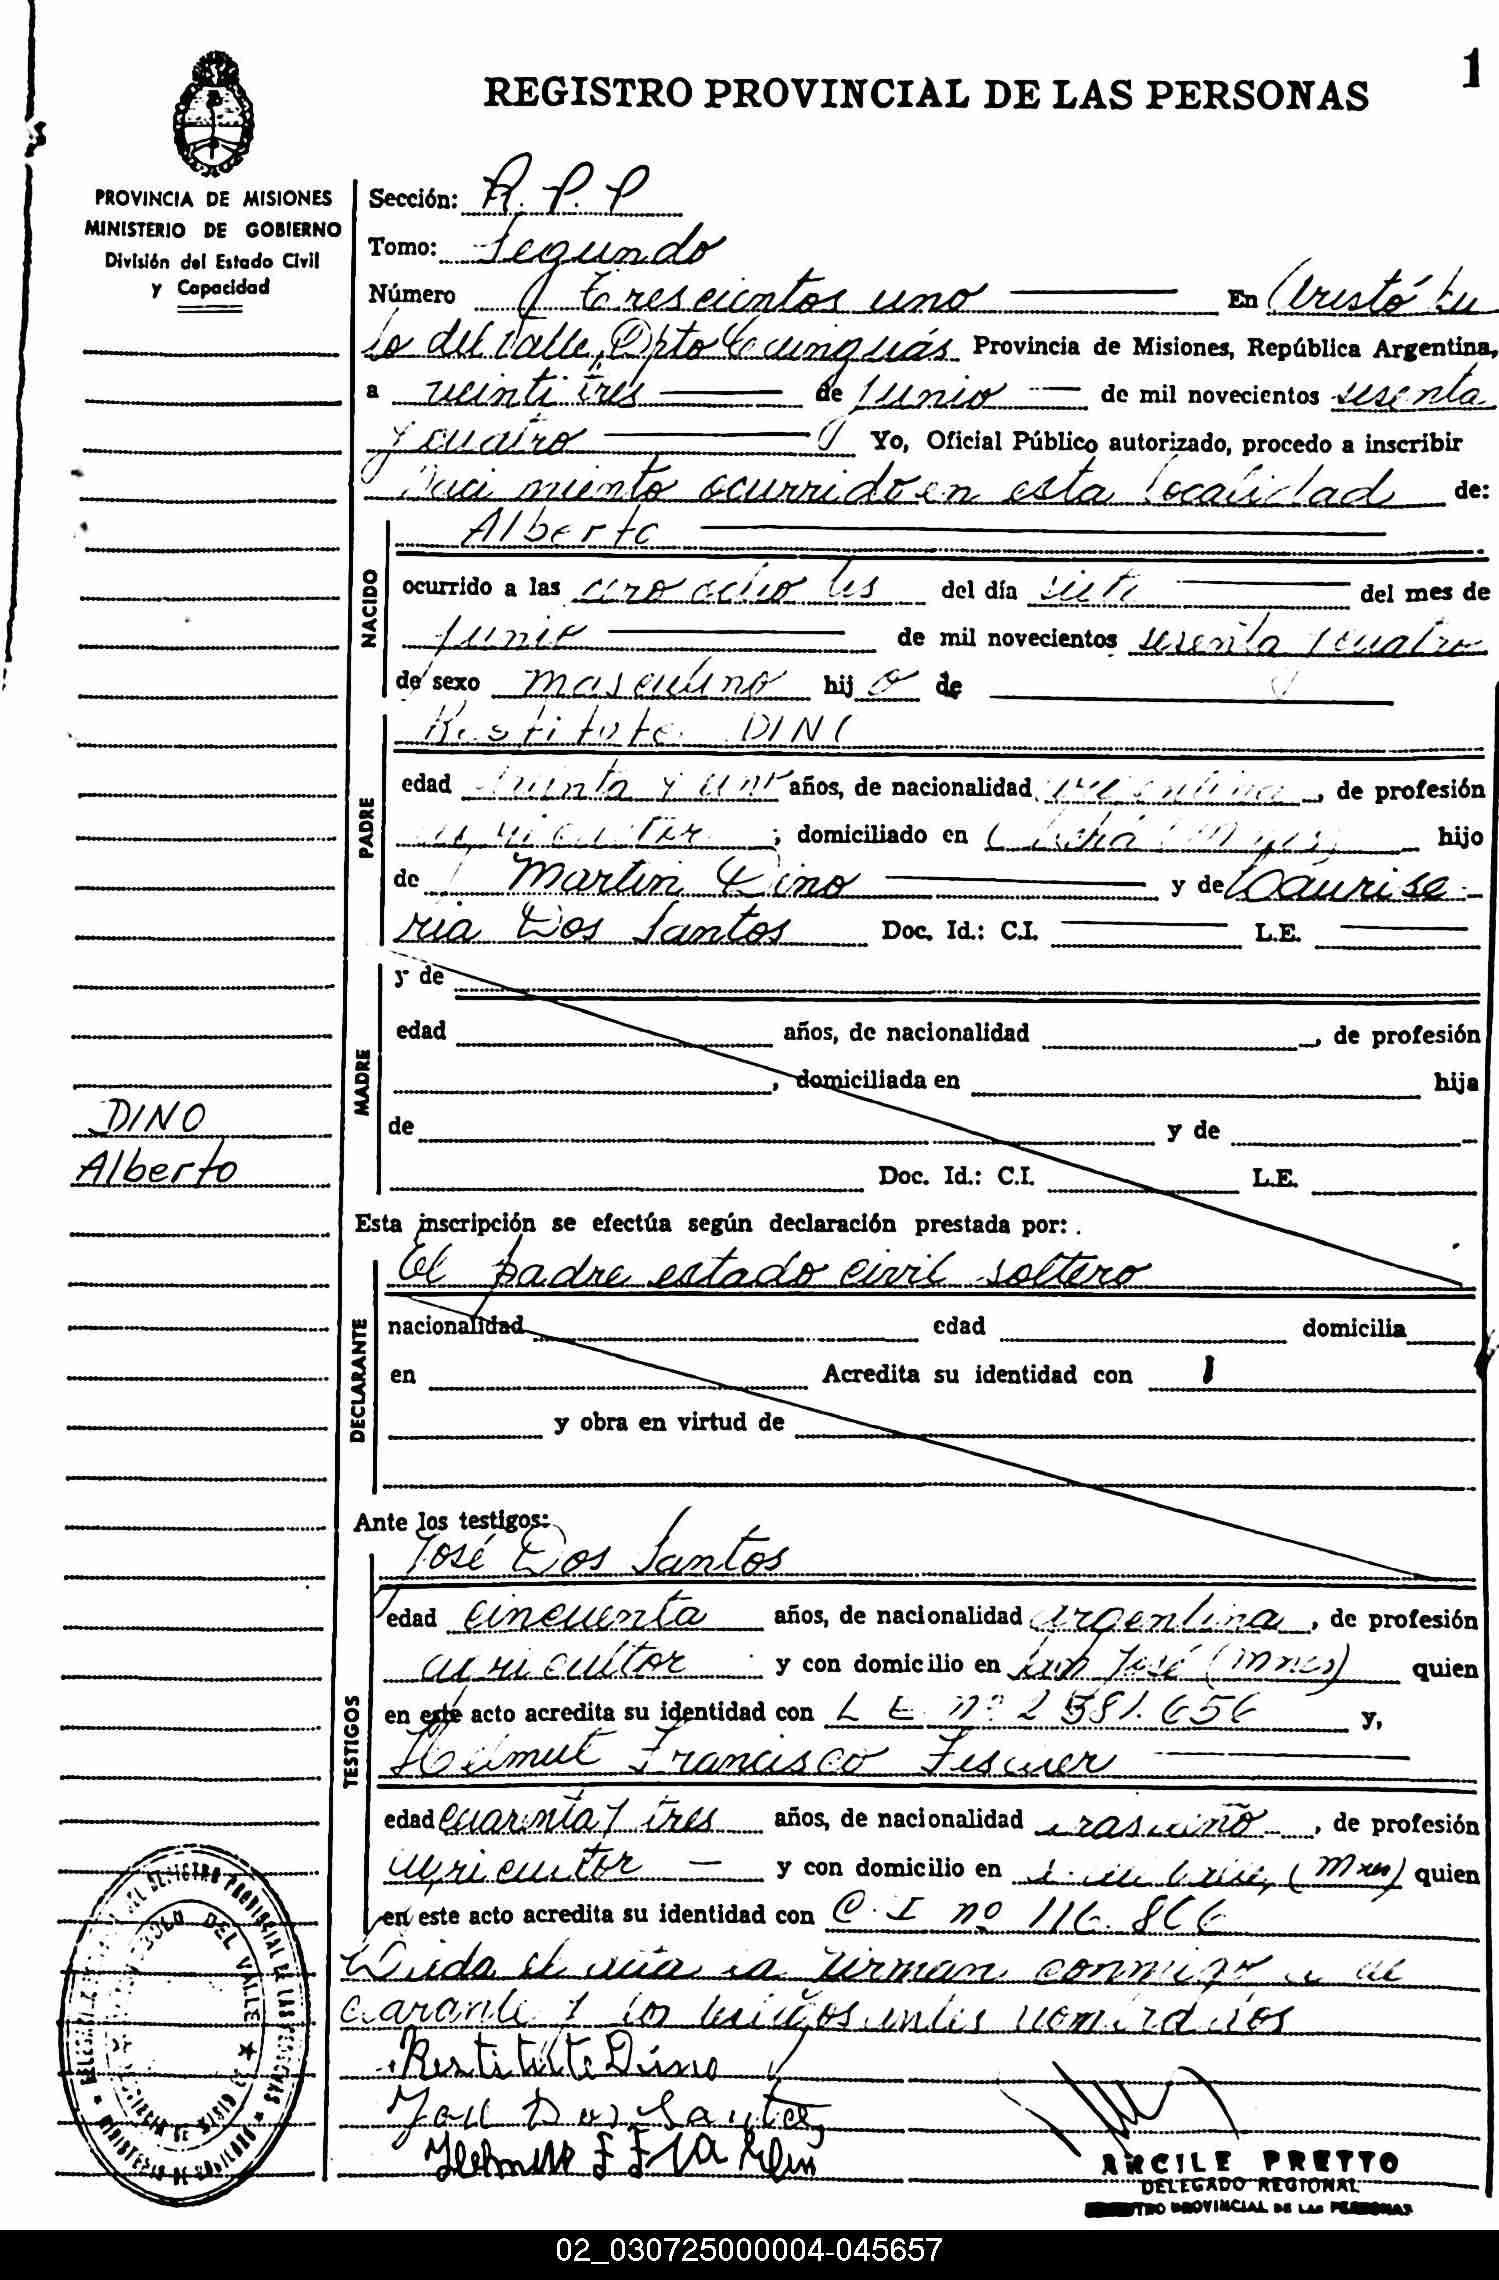 REGISTRO PROVINCIAL DE LAS PERSONAS
1
PROVINCIA DE MISIONES
MINISTERIO DE GOBIERNO
División del Estado Civil
y Capacidad
Sección: R. P. P
Tomo: Segundo
Número Trescientos uno En Aristóbu
lo del Valle, Dpto Cainguás Provincia de Misiones, República Argentina,
a veinti tres de Junio de mil novecientos sesenta
y cuatro Yo, Oficial Público autorizado, procedo a inscribir
Naci miento ocurrido en esta localidad de:
NACIDO
Alberto
ocurrido a las cero ocho hs del día siete del mes de
junio de mil novecientos sesenta y cuatro
de sexo masculino hij o de
PADRE
Restituto DINO
edad treinta y uno años, de nacionalidad argentina, de profesión
agricultor; domiciliado en (Mnes) hijo
de Martin Dino y de
ria Dos Santos Doc. Id.: C.I. L.E.
MADRE
y de
edad años, de nacionalidad , de profesión
, domiciliada en hija
de y de
Doc. Id.: C.I. L.E.
DINO
Alberto
Esta inscripción se efectúa según declaración prestada por:
DECLARANTE
El padre estado civil soltero
nacionalidad edad domicilia
en Acredita su identidad con
y obra en virtud de
Ante los testigos:
TESTIGOS
José Dos Santos
edad cincuenta años, de nacionalidad argentina, de profesión
agricultor y con domicilio en San José (Mnes) quien
en este acto acredita su identidad con L E nº 2 581.656 y,
Helmut Francisco Fischer
edad cuarenta y tres años, de nacionalidad brasileño, de profesión
agricultor y con domicilio en (Mnes) quien
en este acto acredita su identidad con C. I nº 116.866
Leida el acta la firman conmigo el de
clarante y los testigos antes nombrados
Restitute Dino
José Dos Santos
ARCILE PRETTO
DELEGADO REGIONAL
REGISTRO PROVINCIAL DE LAS PERSONAS
02_030725000004-045657